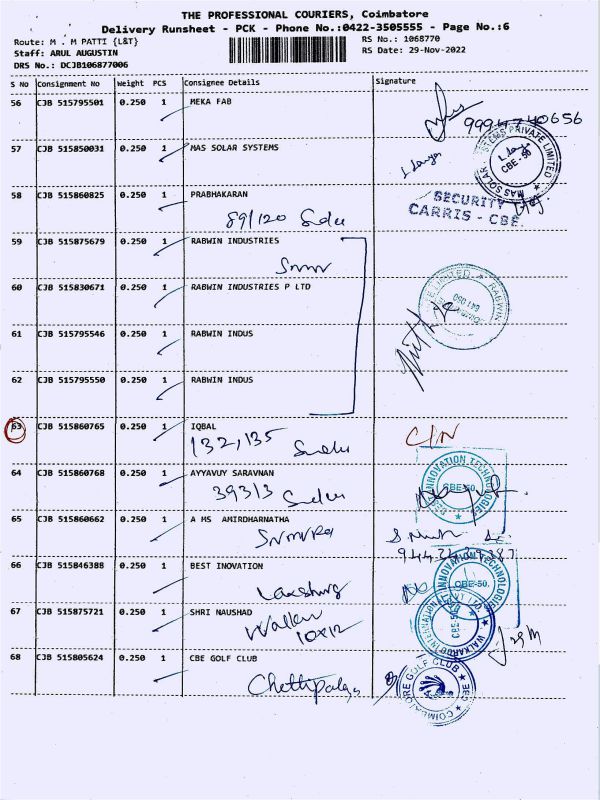 THE PROFESSIONAL COURIERS, Coimbatore
Delivery Runsheet - PCK - Phone No.:0422-3505555 - Page No.:6
Route: M . M PATTI {L&T}
RS No.: 1068770
Staff: ARUL AUGUSTIN
RS Date: 29-Nov-2022
DRS No.: DCJB106877006
S No Consignment No Weight PCS Consignee Details Signature
56 CJB 515795501 0.250 1 MEKA FAB
9994740656
57 CJB 515850031 0.250 1 MAS SOLAR SYSTEMS
MAS SOLAR SYSTEMS PRIVATE LIMITED
CBE-50
58 CJB 515860825 0.250 1 PRABHAKARAN
89/120
SECURITY
CARRIS - CBE.
59 CJB 515875679 0.250 1 RABWIN INDUSTRIES
60 CJB 515830671 0.250 1 RABWIN INDUSTRIES P LTD
LIMITED ★ RABWIN
641 050
61 CJB 515795546 0.250 1 RABWIN INDUS
62 CJB 515795550 0.250 1 RABWIN INDUS
63 CJB 515860765 0.250 1 IQBAL
132, 135
64 CJB 515860768 0.250 1 AYYAVUY SARAVNAN
39313
BEST INNOVATION TECHNOLOGIES
CBE-50.
65 CJB 515860662 0.250 1 A MS AMIRDHARNATHA
66 CJB 515846388 0.250 1 BEST INOVATION
INNOVATION TECHNOLOGIES
CBE-50.
67 CJB 515875721 0.250 1 SHRI NAUSHAD
10x12
WALKAROO INTERNATIONAL PVT LTD.
CBE-50
68 CJB 515805624 0.250 1 CBE GOLF CLUB
Chettipalayam
COIMBATORE GOLF CLUB